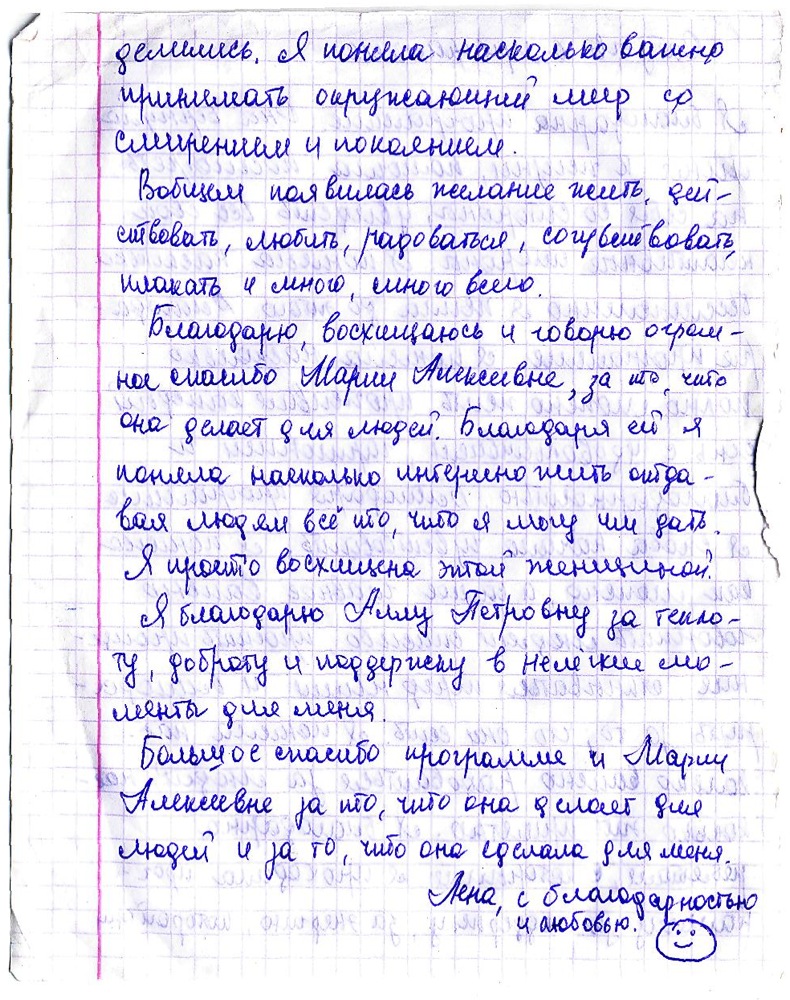 делились. Я поняла насколько важно
принимать окружающий мир со
смирением и покаянием.
Вобщем появилась желание жить, дей-
ствовать, любить, радоваться, сочувствовать,
плакать и много, много всего.
Благодарю, восхищаюсь и говорю огром-
ное спасибо Марии Алексеевне, за то, что
она делает для людей. Благодаря ей я
поняла насколько интересно жить отда-
вая людям всё то, что я могу им дать.
Я просто восхищена этой женщиной.
Я благодарю Аллу Петровну за тепло-
ту, доброту и поддержку в нелёгкие мо-
менты для меня.
Большое спасибо программе и Марии
Алексеевне за то, что она делает для
людей и за то, что она сделала для меня.
Лена, с благодарностью
и любовью.